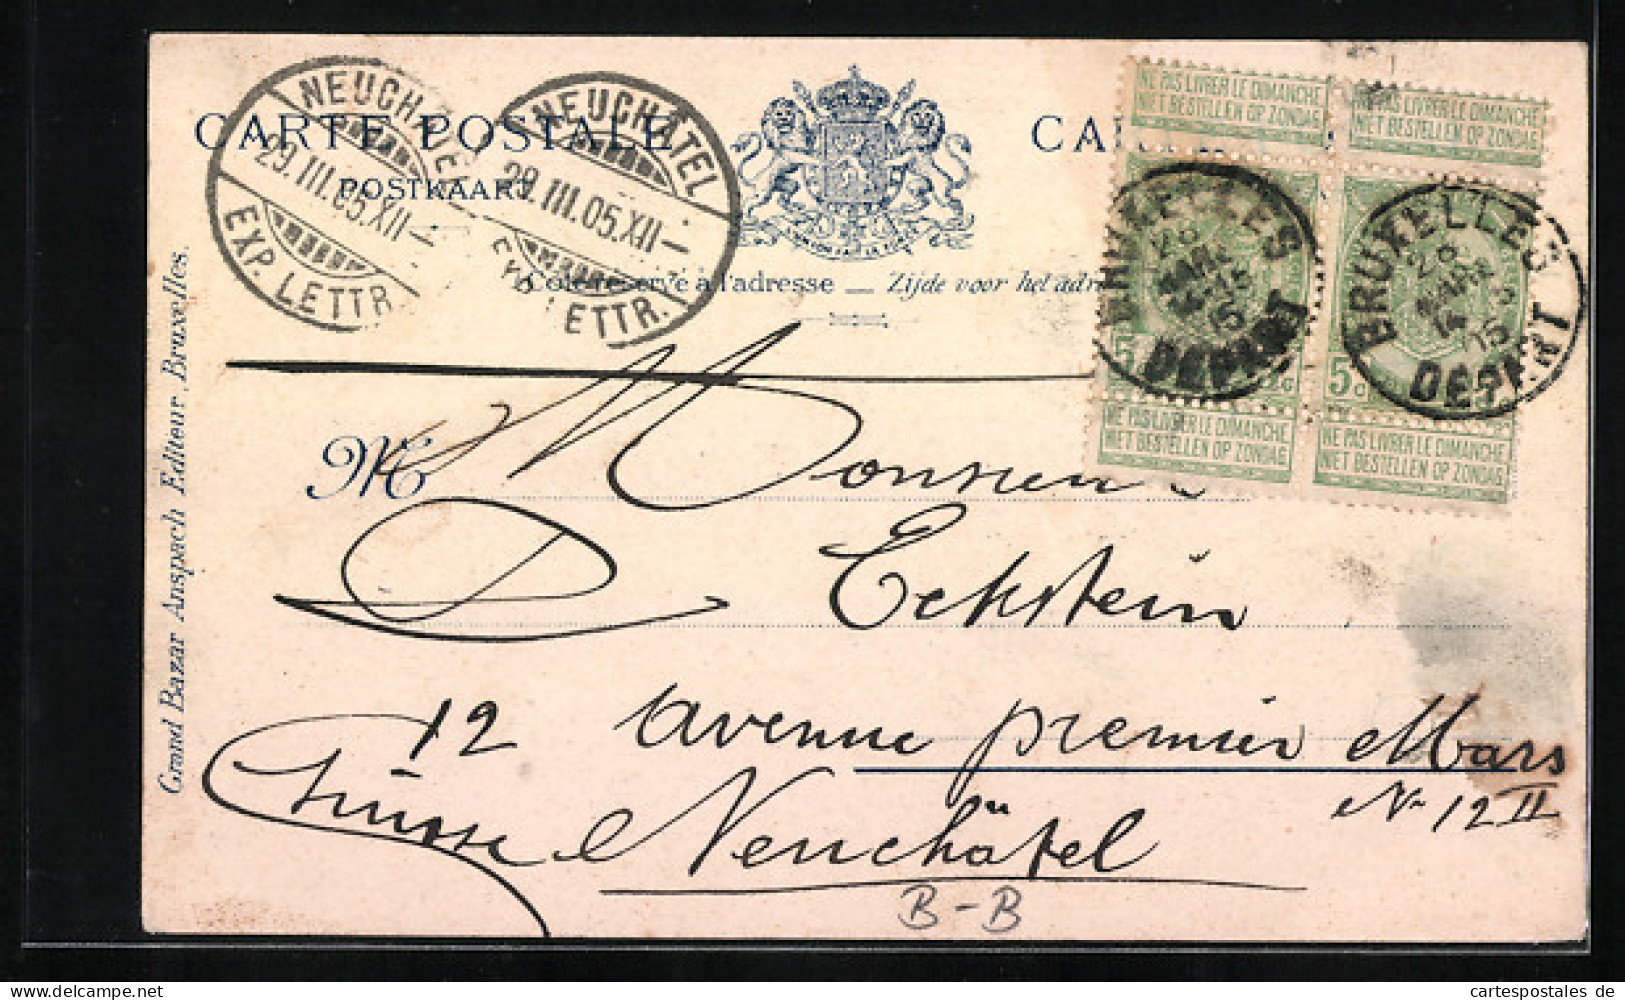 NEUCHÂTEL
29.III.05.XII—
EXP. LETTR.
NEUCHÂTEL
29.III.05.XII—
EXP. LETTR.
CARTE POSTALE
POSTKAART
Côté réservé à l'adresse — Zijde voor het adre
NE PAS LIVRER LE DIMANCHE
NIET BESTELLEN OP ZONDAG
NE PAS LIVRER LE DIMANCHE
NIET BESTELLEN OP ZONDAG
BRUXELLES
28
MARS
DÉPART
BRUXELLES
28
MARS
DÉPART
5 c
5 c
NE PAS LIVRER LE DIMANCHE
NIET BESTELLEN OP ZONDAG
NE PAS LIVRER LE DIMANCHE
NIET BESTELLEN OP ZONDAG
M
Monsieur
D Eckstein
12 avenue premier Mars
No 12 II
Suisse Neuchâtel
B-B
Grand Bazar Anspach Editeur, Bruxelles.
cartespostales de